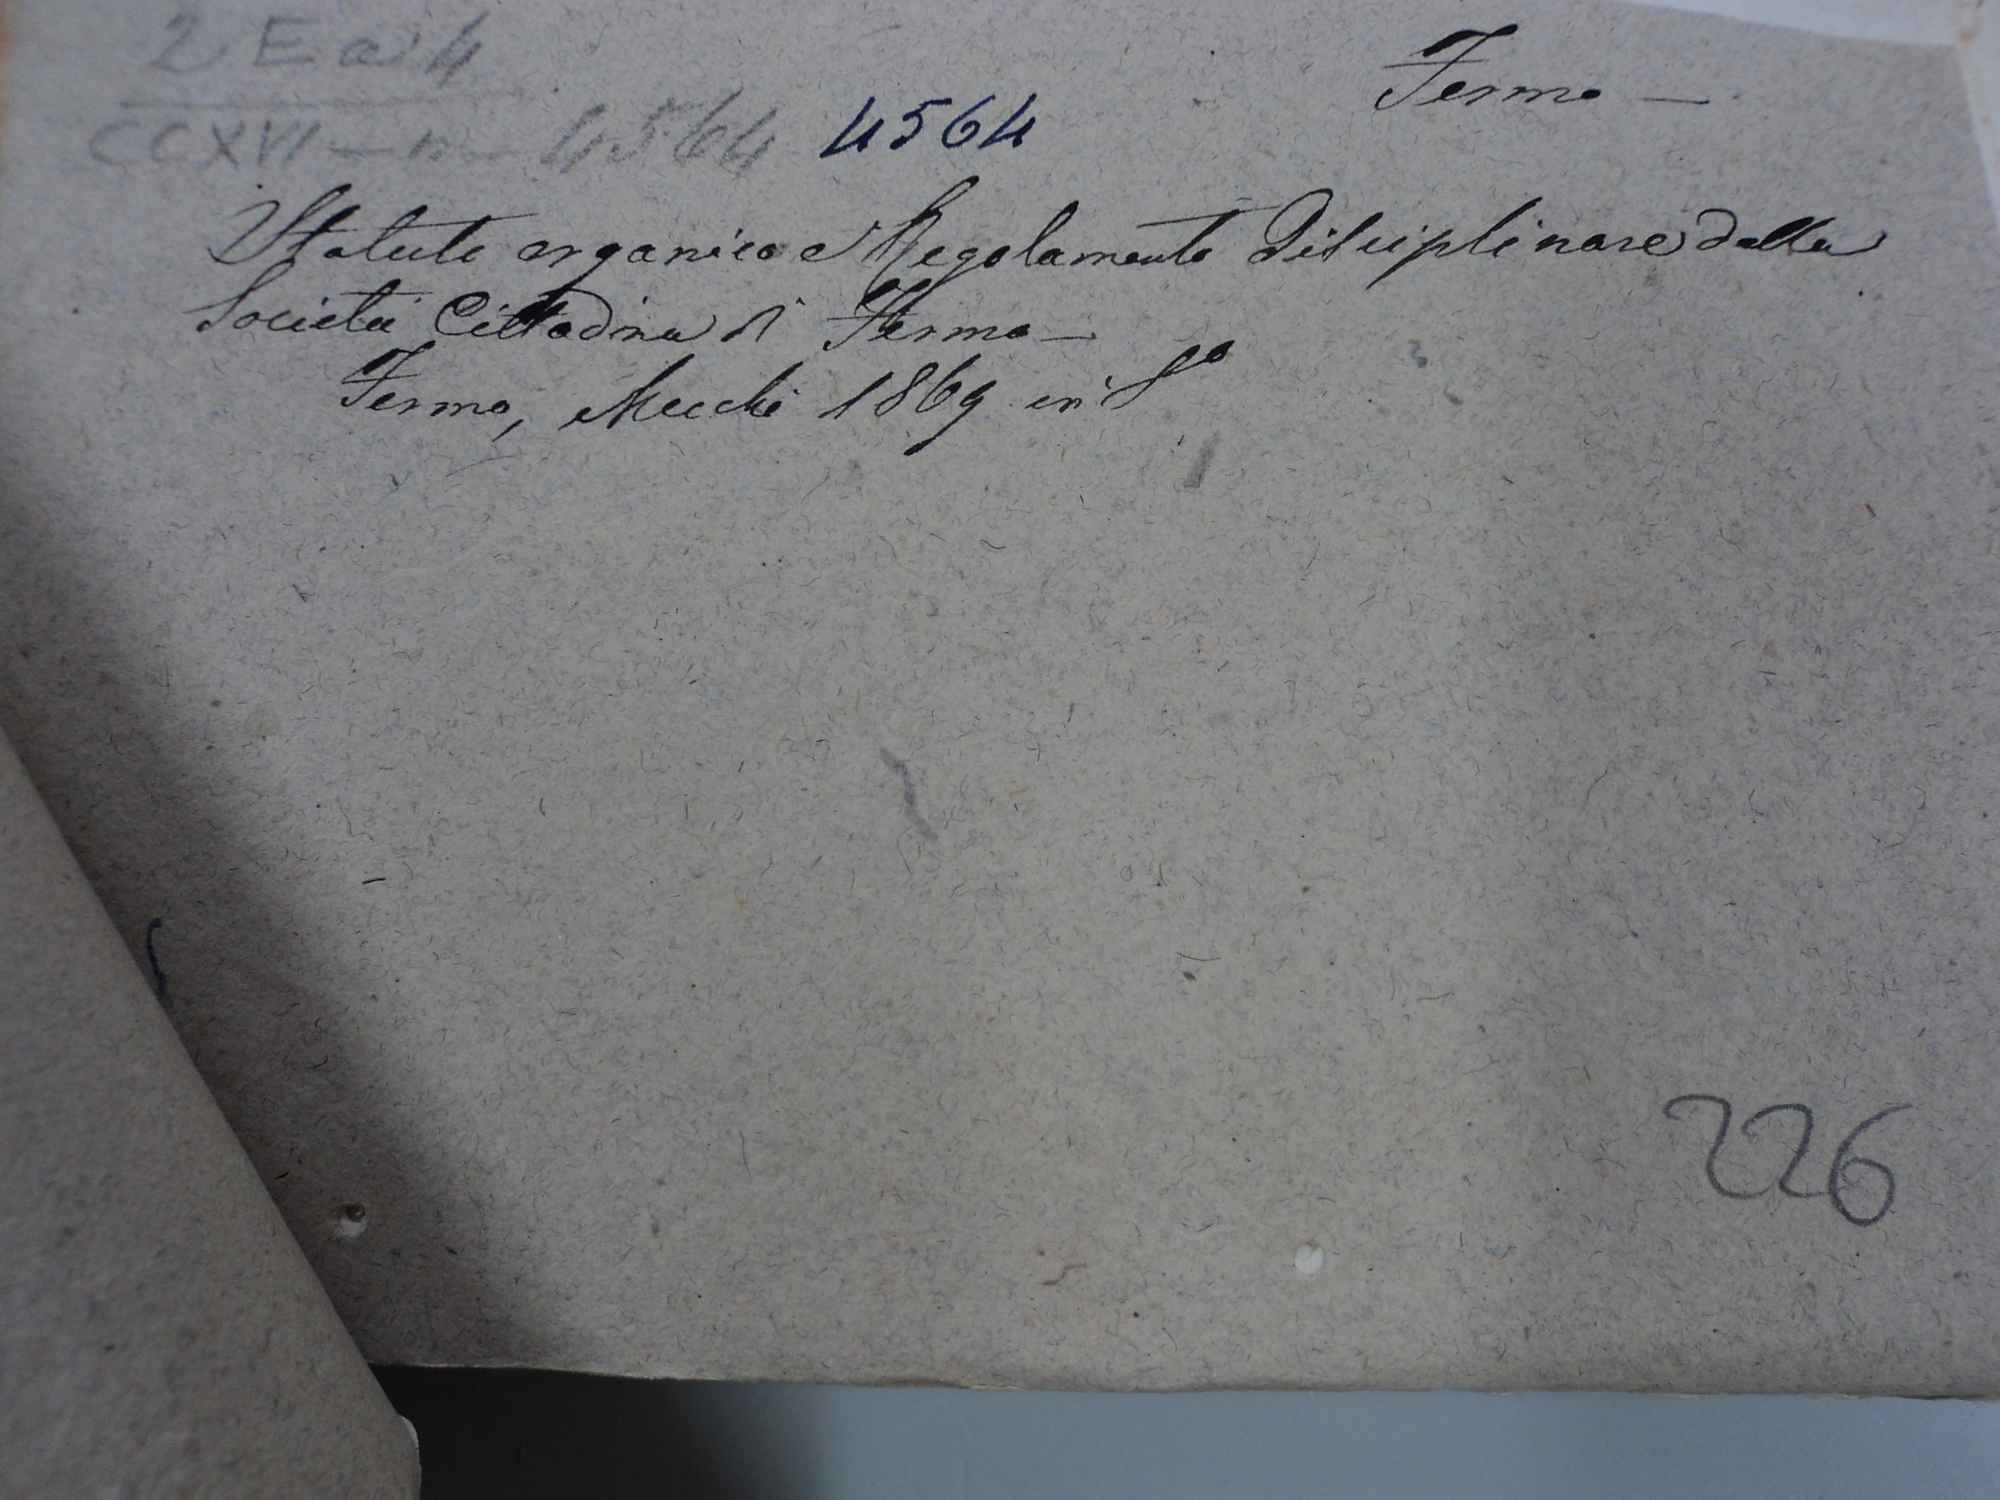 2 E a 4
Fermo —
CCXVI — n— 4564 4564
Statuto organico e Regolamento Disciplinare della
Società Cittadina di Fermo —
Fermo, Mecchi 1869 in 8º
226